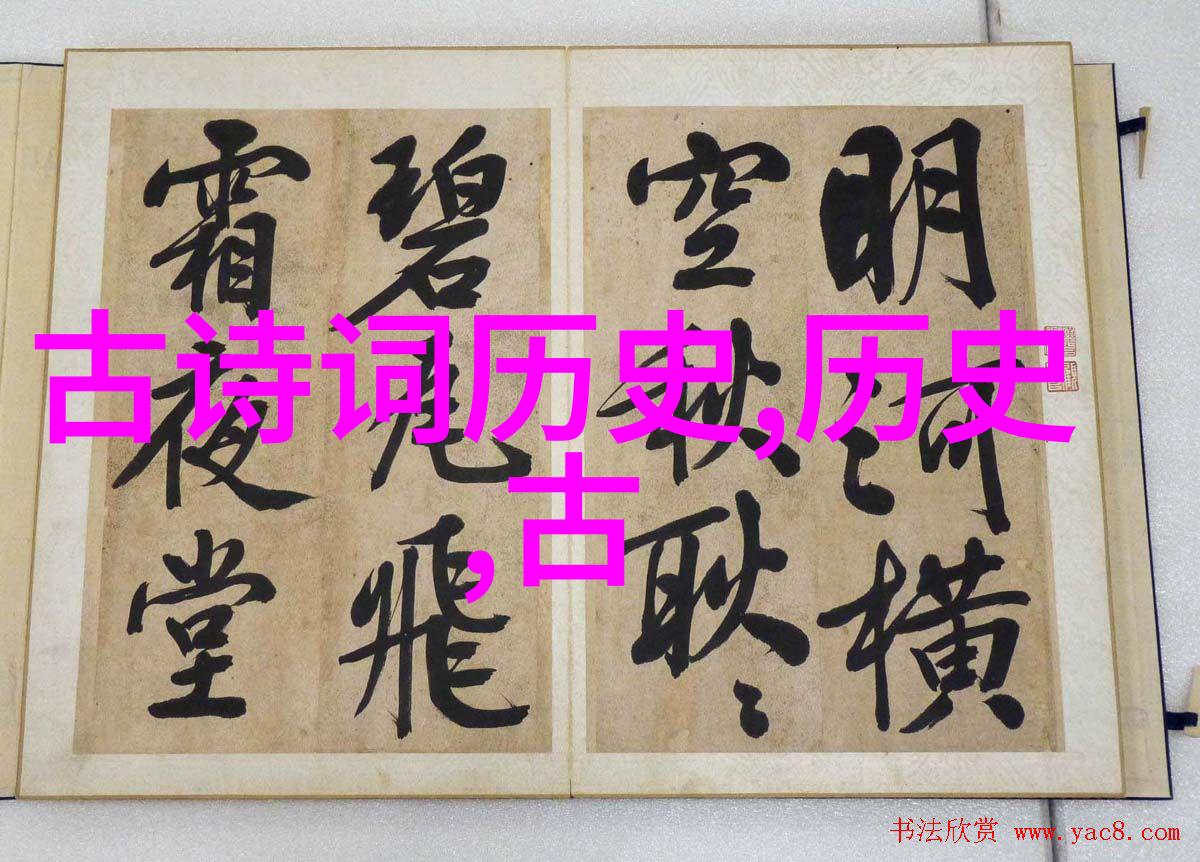 明河横
空秋耿〻
碧瓦飛
霜夜堂
古诗词历史,历史
,古
书法欣赏 www.yac8.com